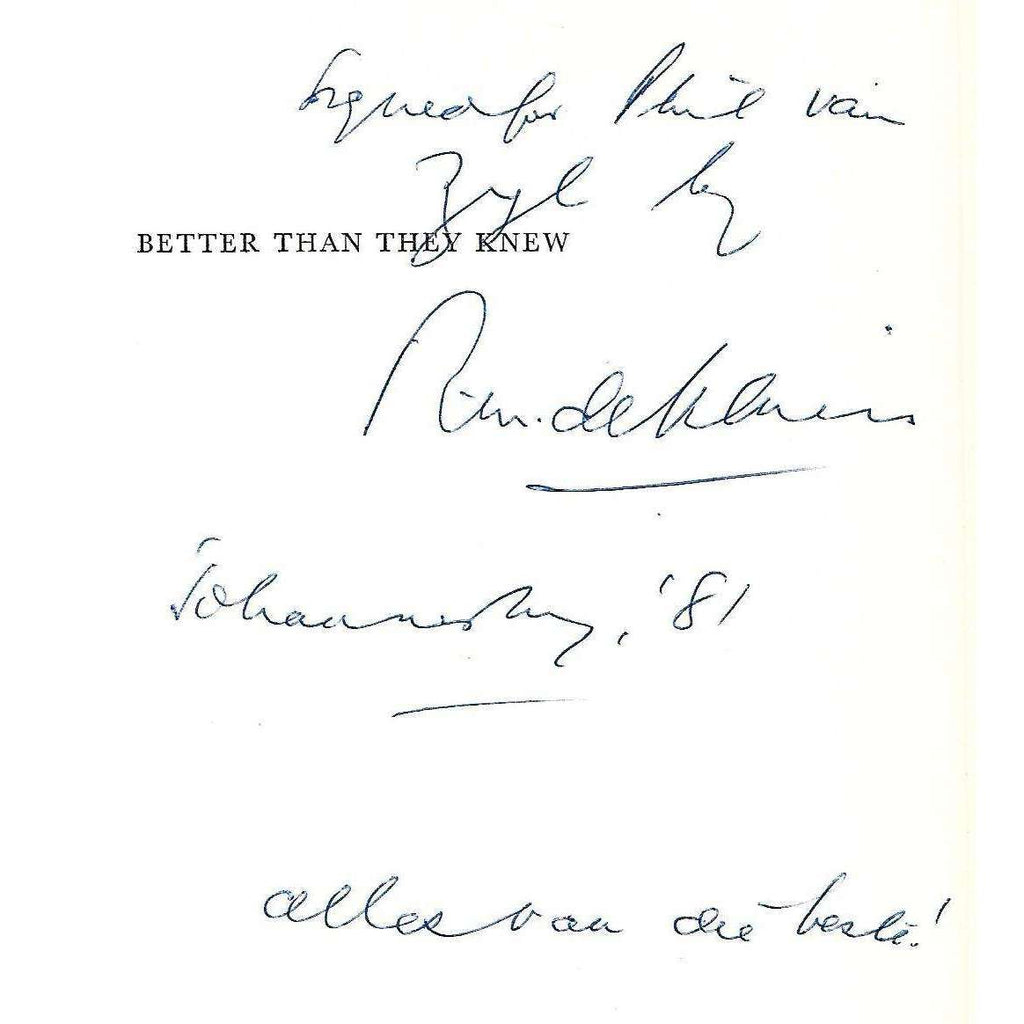 Signed for Phil van
Zyl by
BETTER THAN THEY KNEW
R.M. de Villiers
Johannesburg, '81
alles van die beste!